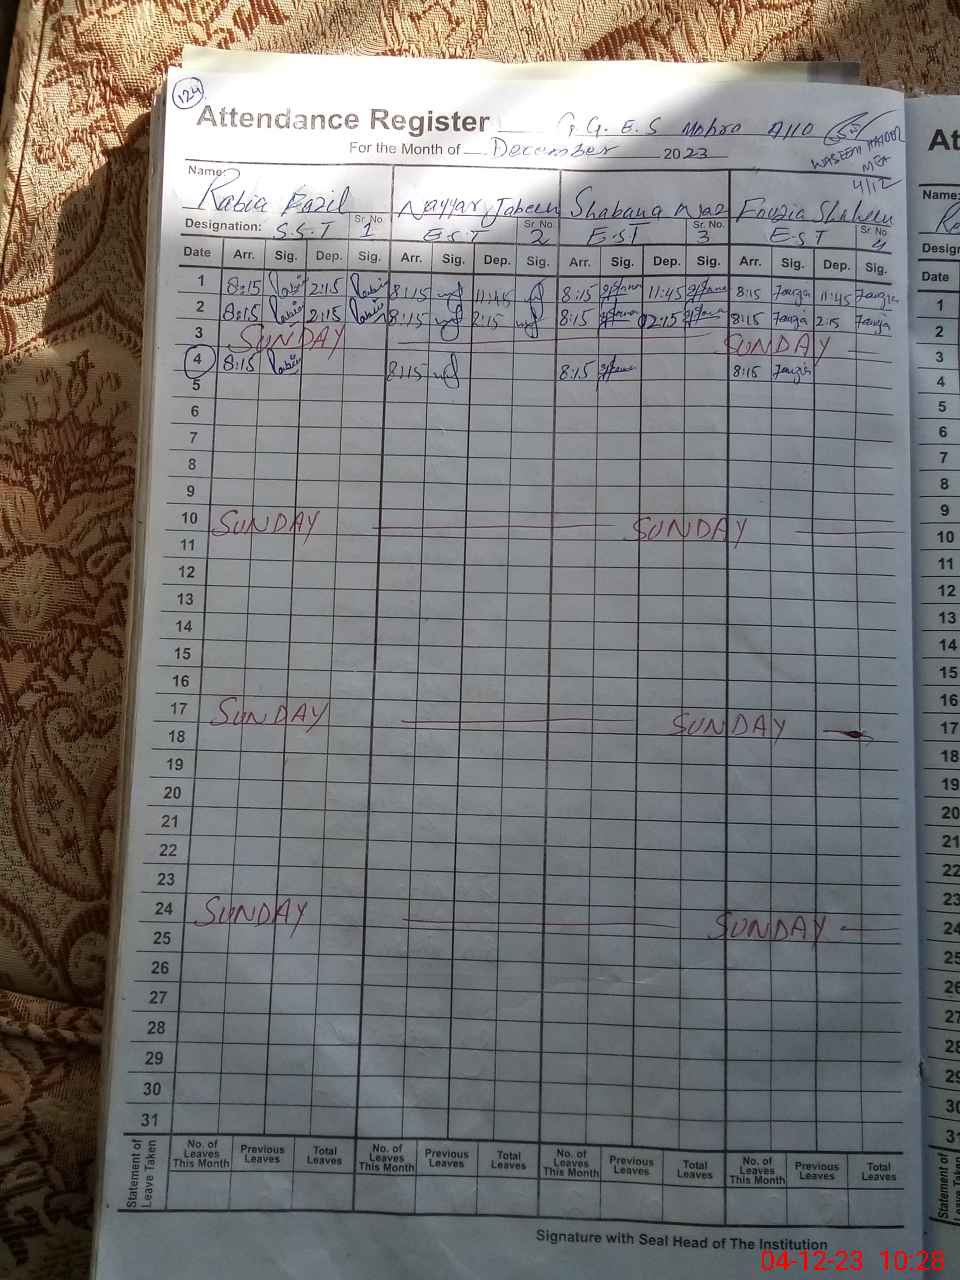 124
Attendance Register G.G.E.S Mohra
For the Month of December 2023
WASEEM HAIDER
MEA
4/12
Name: Rabia Fazil Nayyar Jabeen Shabana Niaz Fouzia Shaheen
Designation: S.S.T Sr. No. 1 E.S.T Sr. No. 2 E.S.T Sr. No. 3 E.S.T Sr. No. 4
Date Arr. Sig. Dep. Sig. Arr. Sig. Dep. Sig. Arr. Sig. Dep. Sig. Arr. Sig. Dep. Sig.
1 8:15 Rabia 2:15 Rabia 8:15 11:45 8:15 11:45 8:15 Fouzia 11:45 Fouzia
2 8:15 Rabia 2:15 Rabia 8:15 2:15 8:15 02:15 8:15 Fouzia 2:15 Fouzia
3 SUNDAY SUNDAY
4 8:15 Rabia 8:15 8:15 8:15 Fouzia
5
6
7
8
9
10 SUNDAY SUNDAY
11
12
13
14
15
16
17 SUNDAY SUNDAY
18
19
20
21
22
23
24 SUNDAY SUNDAY
25
26
27
28
29
30
31
Statement of Leave Taken
No. of Leaves This Month Previous Leaves Total Leaves No. of Leaves This Month Previous Leaves Total Leaves No. of Leaves This Month Previous Leaves Total Leaves No. of Leaves This Month Previous Leaves Total Leaves
Signature with Seal Head of The Institution
At
Name:
Date
1
2
3
4
5
6
7
8
9
10
11
12
13
14
15
16
17
18
19
20
21
22
23
24
25
26
27
28
29
30
31
Statement of
04-12-23 10:28